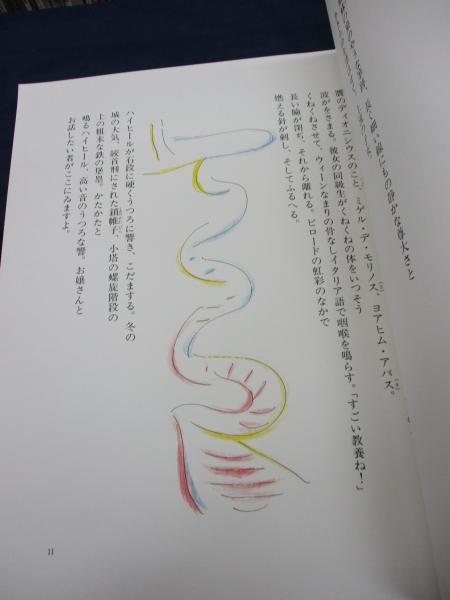 贋のディオニシウスのこと、ミゲル・デ・モリノス、ヨアヒム・アバス。
波がをさまる。彼女の同級生がくねくねの体をいつそう
くねくねさせて、ウィーンなまりの骨なしイタリア語で咽喉を鳴らす。「すごい教養ね！」
長い瞼が閉ぢ、それから離れる。ビロードの虹彩のなかで
燃える針が刺し、そしてふるへる。
ハイヒールが石段に硬くうつろに響き、こだまする。冬の
城の大気、絞首刑にされた鎖帷子、小塔の螺旋階段の
上の粗末な鉄の堡塁。かたかたと
鳴るハイヒール、高い音のうつろな響。お嬢さんと
お話したい者がここにゐますよ。
11